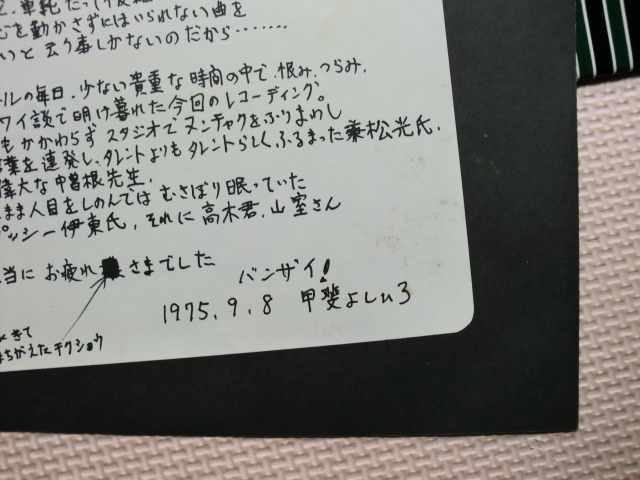 単純だっ
心を動かさずにはいられない曲を
いと云う事しかないのだから‥‥‥‥
ールの毎日、少ない貴重な時間の中で、恨み、つらみ、
ワイ談で明け暮れた今回のレコーディング。
もかかわらずスタジオでヌンチャクをふりまわし
葉を連発し、タレントよりもタレントらしくふるまった兼松光氏、
偉大な中曽根先生、
まま人目をしのんではむさぼり眠っていた
ペッシー伊東氏、それに高木君、山室さん
当にお疲れさまでした
バンザイ!
1975.9.8 甲斐よしひろ
きて
まちがえたチクショウ